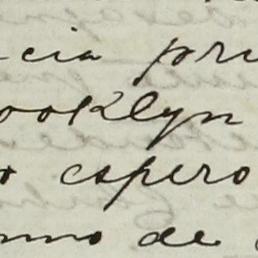 cia pri
ooklyn
o espero
mo de